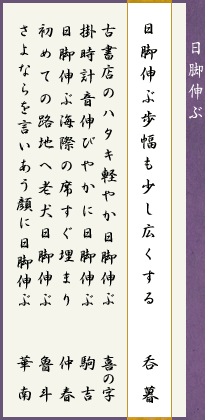 日脚伸ぶ
日脚伸ぶ歩幅も少し広くする 呑暮
古書店のハタキ軽やか日脚伸ぶ 喜の字
掛時計音伸びやかに日脚伸ぶ 駒吉
日脚伸ぶ海際の席すぐ埋まり 仲春
初めての路地へ老犬日脚伸ぶ 魯斗
さよならを言いあう顔に日脚伸ぶ 華南